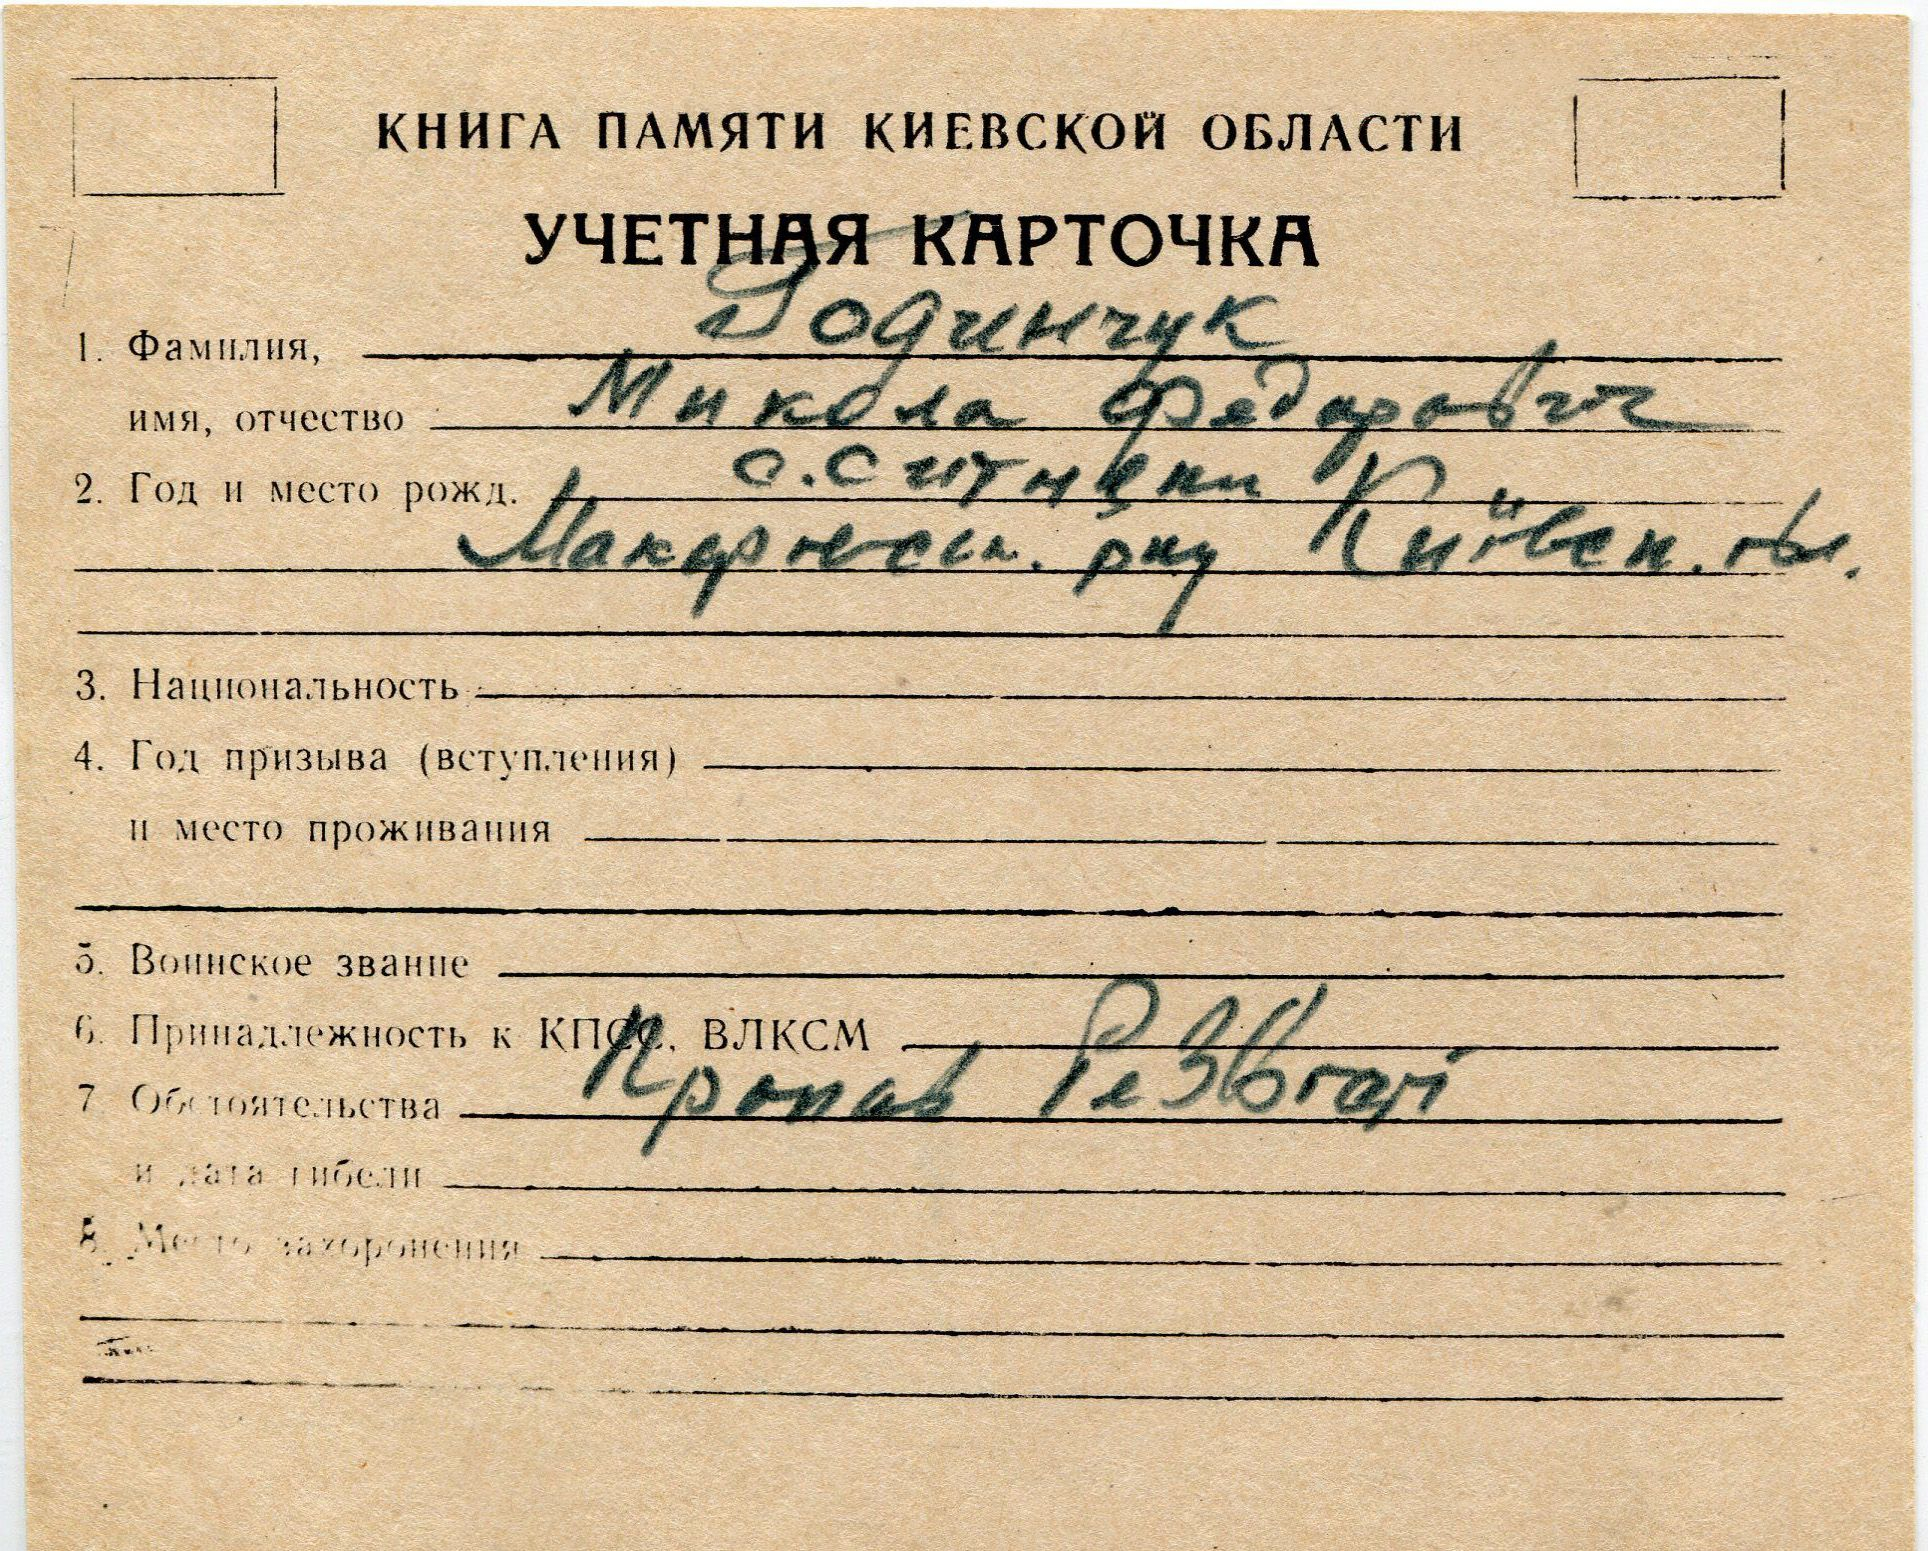 КНИГА ПАМЯТИ КИЕВСКОЙ ОБЛАСТИ
УЧЕТНАЯ КАРТОЧКА
1. Фамилия, Годинчук
имя, отчество Микола Федорович
2. Год и место рожд. с. Ситняки
Макарівськ. р-ну Київськ. обл.
3. Национальность
4. Год призыва (вступления)
и место проживания
5. Воинское звание
6. Принадлежность к КПСС, ВЛКСМ
7. Обстоятельства Пропав без вісті
и дата гибели
8. Место захоронения